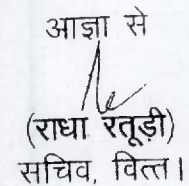 आज्ञा से
(राधा रतूड़ी)
सचिव, वित्त।